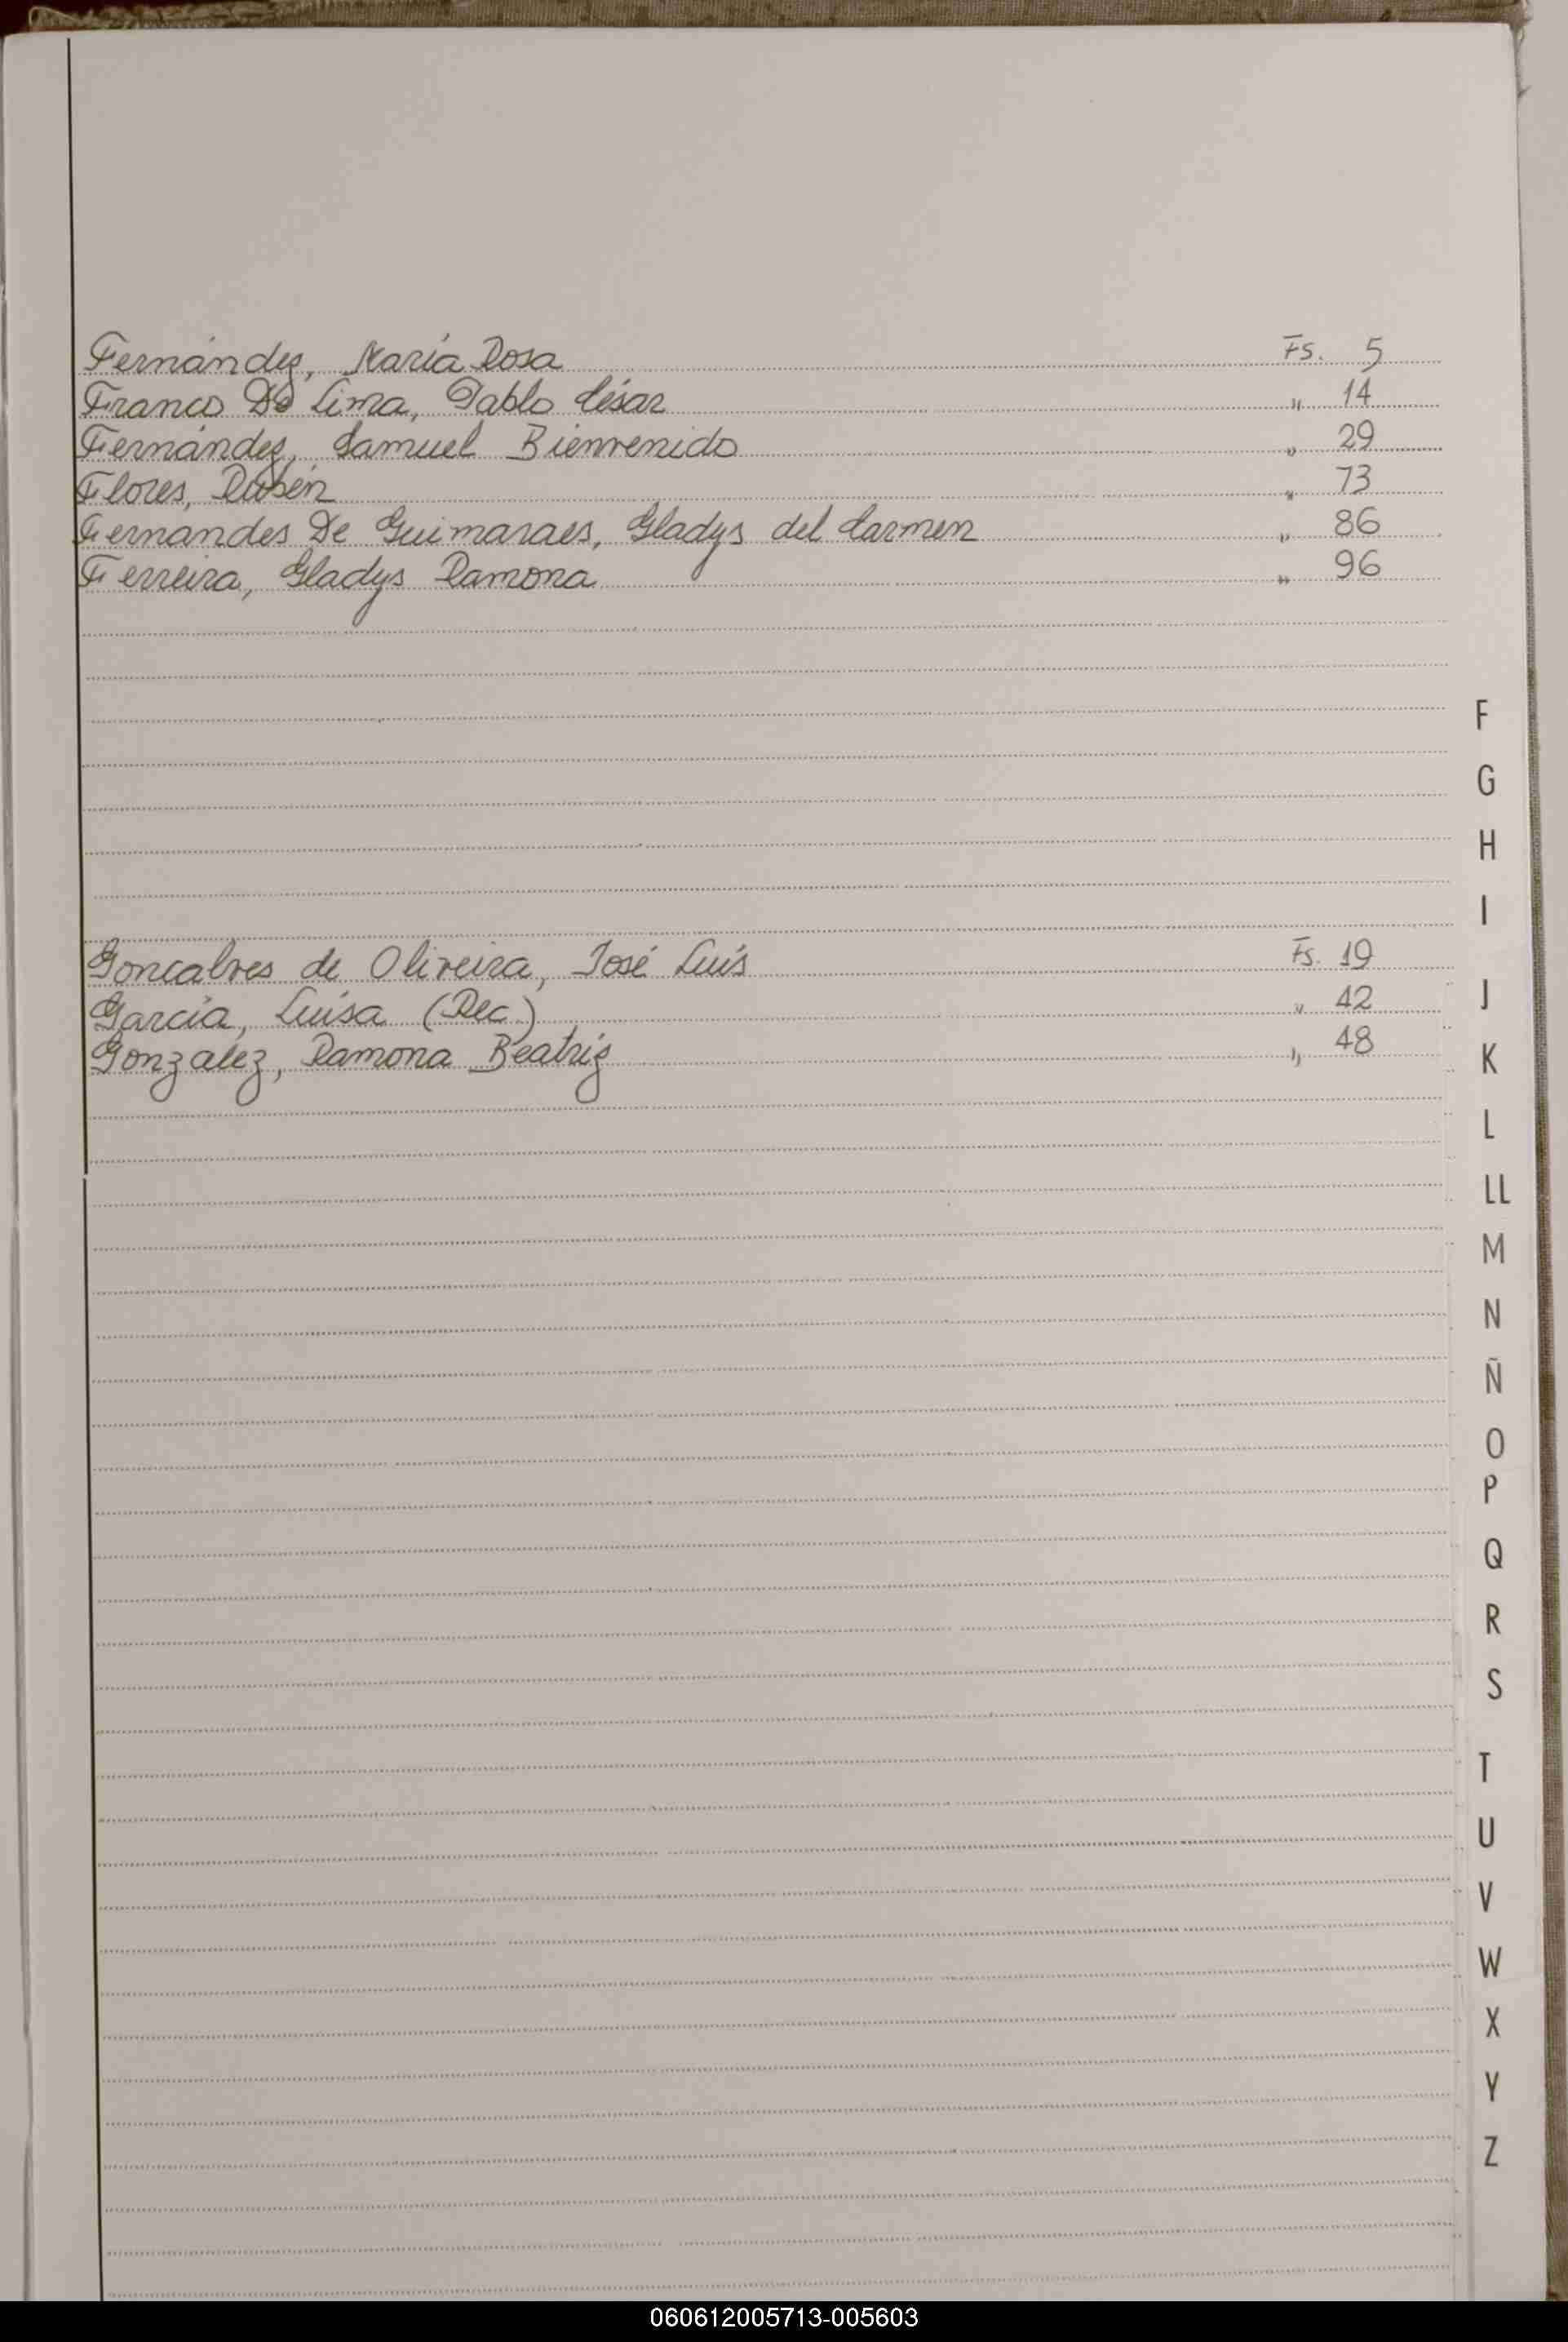 Fernández, María Rosa Fs. 5
Franco De Lima, Pablo César " 14
Fernández, Samuel Bienvenido " 29
Flores, Rubén " 73
Fernandes De Guimaraes, Gladys del Carmen " 86
Ferreira, Gladys Ramona " 96
F
G
H
I
Goncalves de Oliveira, José Luis Fs. 19
García, Luisa (Rec.) " 42
J
González, Ramona Beatriz " 48
K
L
LL
M
N
Ñ
O
P
Q
R
S
T
U
V
W
X
Y
Z
060612005713-005603